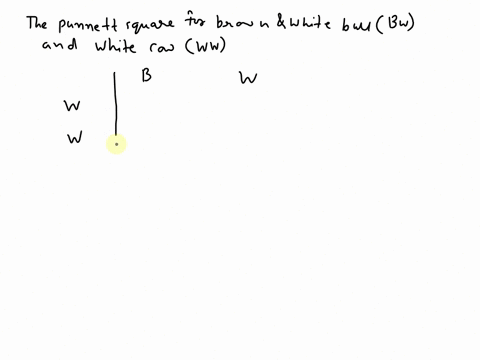 The punnett square for brown & white bull (BW)
and white cow (WW)
B W
W
W